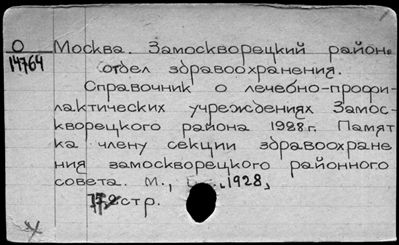 О Москва. Замоскворецкий район.
14764 отдел здравоохранения.
Справочник о лечебно-профи-
лактических учреждениях Замос-
кворецкого района 1928 г. Памят
ка члену секции здравоохране
ния замоскворецкого районного
совета. М., 1928,
стр.